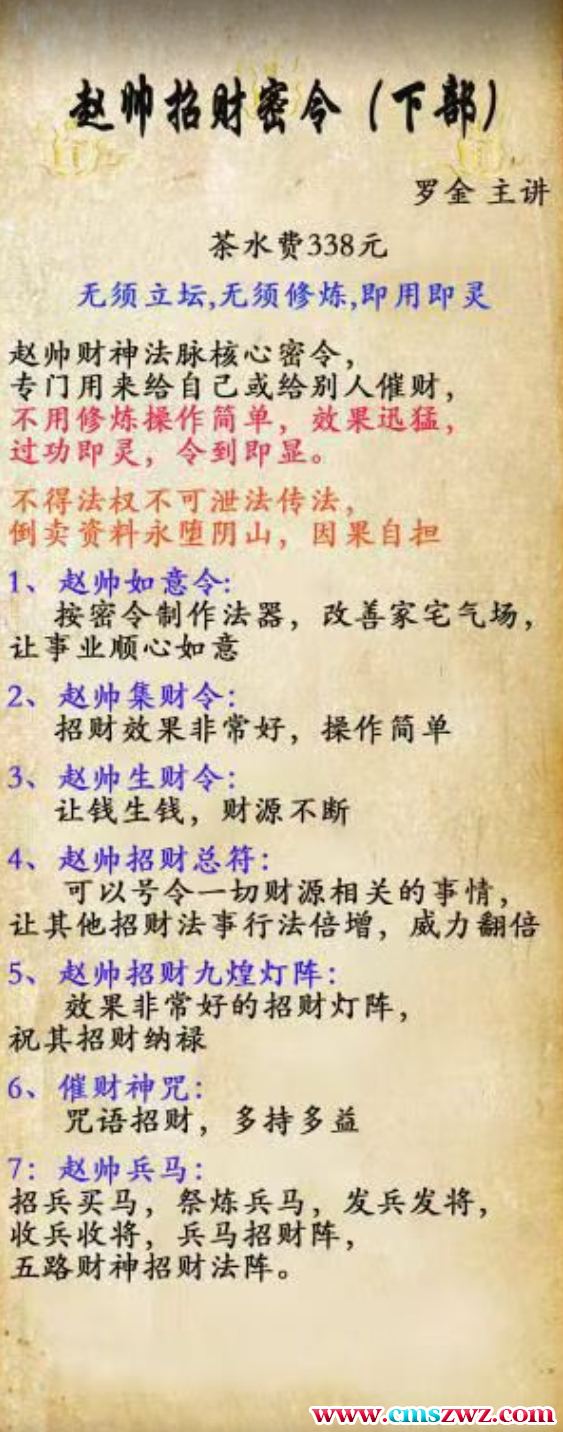 赵帅招财密令（下部）
罗金 主讲
茶水费338元
无须立坛,无须修炼,即用即灵
赵帅财神法脉核心密令，
专门用来给自己或给别人催财，
不用修炼操作简单，效果迅猛，
过功即灵，令到即显。
不得法权不可泄法传法，
倒卖资料永堕阴山，因果自担
1、赵帅如意令:
按密令制作法器，改善家宅气场，
让事业顺心如意
2、赵帅集财令:
招财效果非常好，操作简单
3、赵帅生财令:
让钱生钱，财源不断
4、赵帅招财总符:
可以号令一切财源相关的事情，
让其他招财法事行法倍增，威力翻倍
5、赵帅招财九煌灯阵:
效果非常好的招财灯阵，
祝其招财纳禄
6、催财神咒:
咒语招财，多持多益
7: 赵帅兵马:
招兵买马，祭炼兵马，发兵发将，
收兵收将，兵马招财阵，
五路财神招财法阵。
www.cmszwz.com